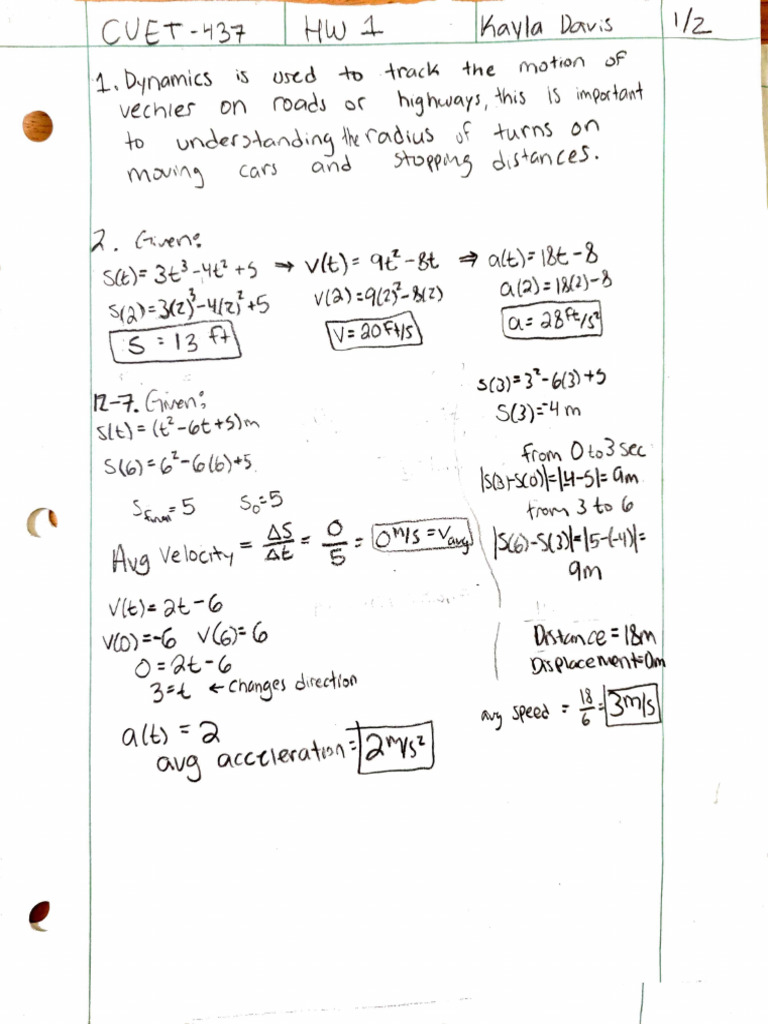 CVET-437 HW 1 Kayla Davis 1/2
1. Dynamics is used to track the motion of
vechles on roads or highways, this is important
to understanding the radius of turns on
moving cars and stopping distances.
2. Given:
S(t)= 3t³-4t²+5 → V(t)= 9t²-8t ⇒ a(t)=18t-8
S(2)=3(2)³-4(2)²+5 V(2)=9(2)²-8(2) a(2)=18(2)-8
S = 13 ft V=20ft/s a=28ft/s²
12-7. Given:
S(t)=(t²-6t+5)m
S(6)=6²-6(6)+5
S final=5 S₀=5
Avg Velocity = ΔS/Δt = 0/5 = 0 m/s = Vavg
V(t)=2t-6
V(0)=-6 V(6)=6
0=2t-6
3=t ← changes direction
a(t) = 2
avg acceleration= 2 m/s²
S(3)=3²-6(3)+5
S(3)=-4m
from 0 to 3 sec
|S(3)-S(0)|=|4-5|=9m
from 3 to 6
|S(6)-S(3)|=|5-(-4)|=
9m
Distance=18m
Displacement=0m
avg speed = 18/6 = 3m/s